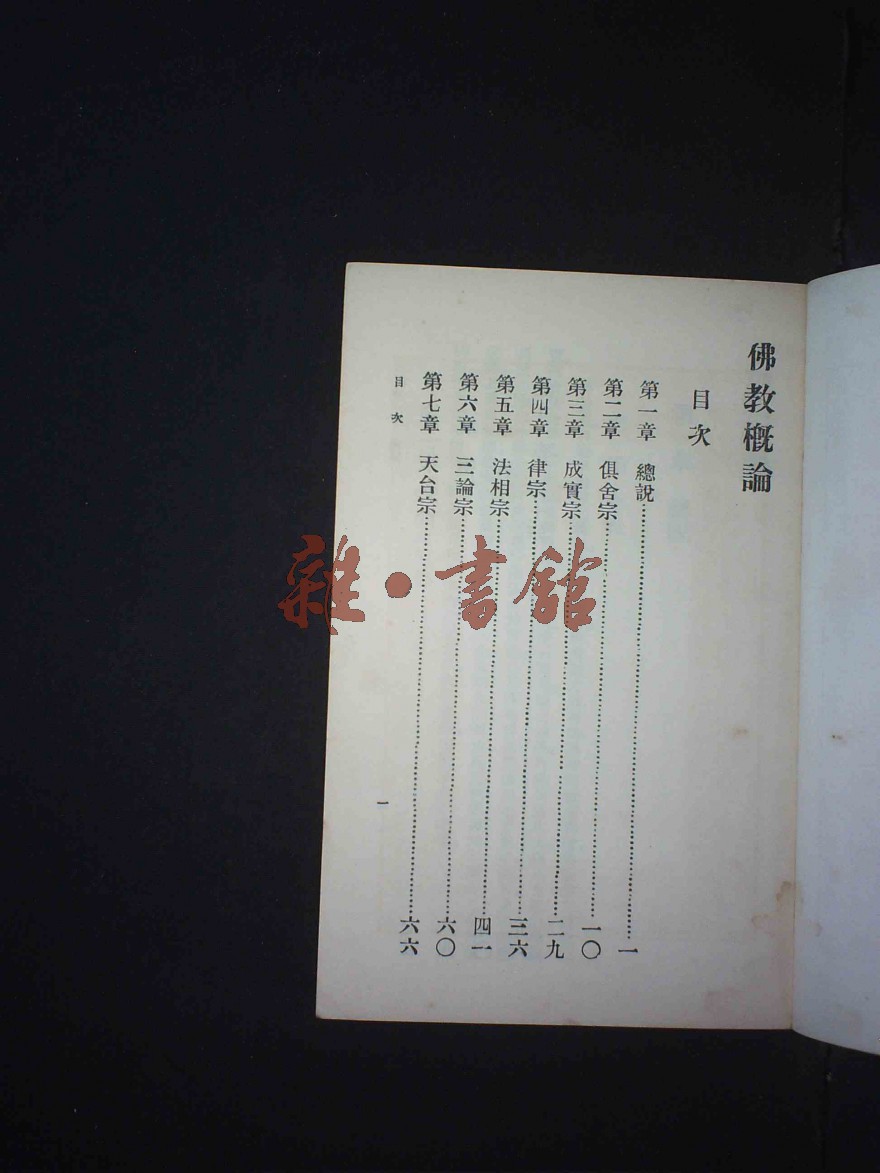 佛教概論
目次
第一章　總說……一
第二章　俱舍宗……一〇
第三章　成實宗……二九
第四章　律宗……三六
第五章　法相宗……四一
第六章　三論宗……六〇
第七章　天台宗……六六
目次
一
雜·書館